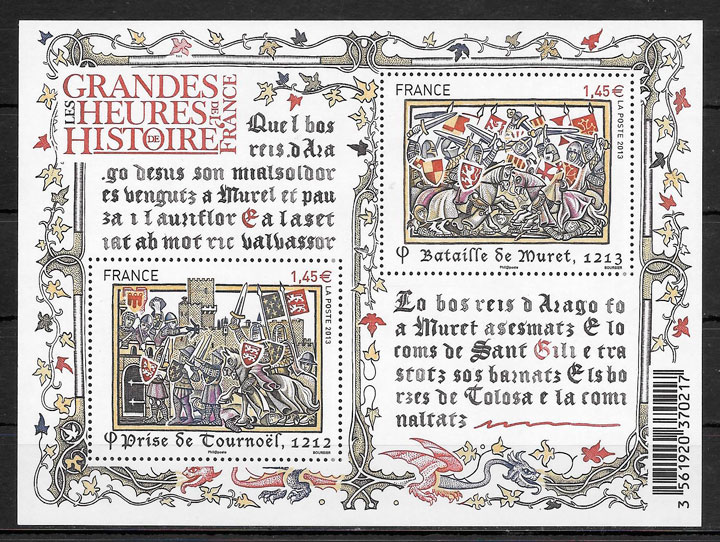 LES
GRANDES
HEURES
DE L'
HISTOIRE
DE
FRANCE
Que l bos
reis.d'Ara
go desus son mialsoldor
es vengutz a Murel et pau
za i l auriflor E a la set
iat ab mot ric valvassor
FRANCE 1,45€
LA POSTE 2013
φ Bataille de Muret, 1213
Phil@poste BOURSIER
FRANCE 1,45€
LA POSTE 2013
φ Prise de Tournoël, 1212
Phil@poste BOURSIER
Lo bos reis d Arago fo
a Muret asesmatz E lo
coms de Sant Gili e tra
stotz sos barnatz Els bo
rzes de Tolosa e la comi
naltatz
3 561920 370217